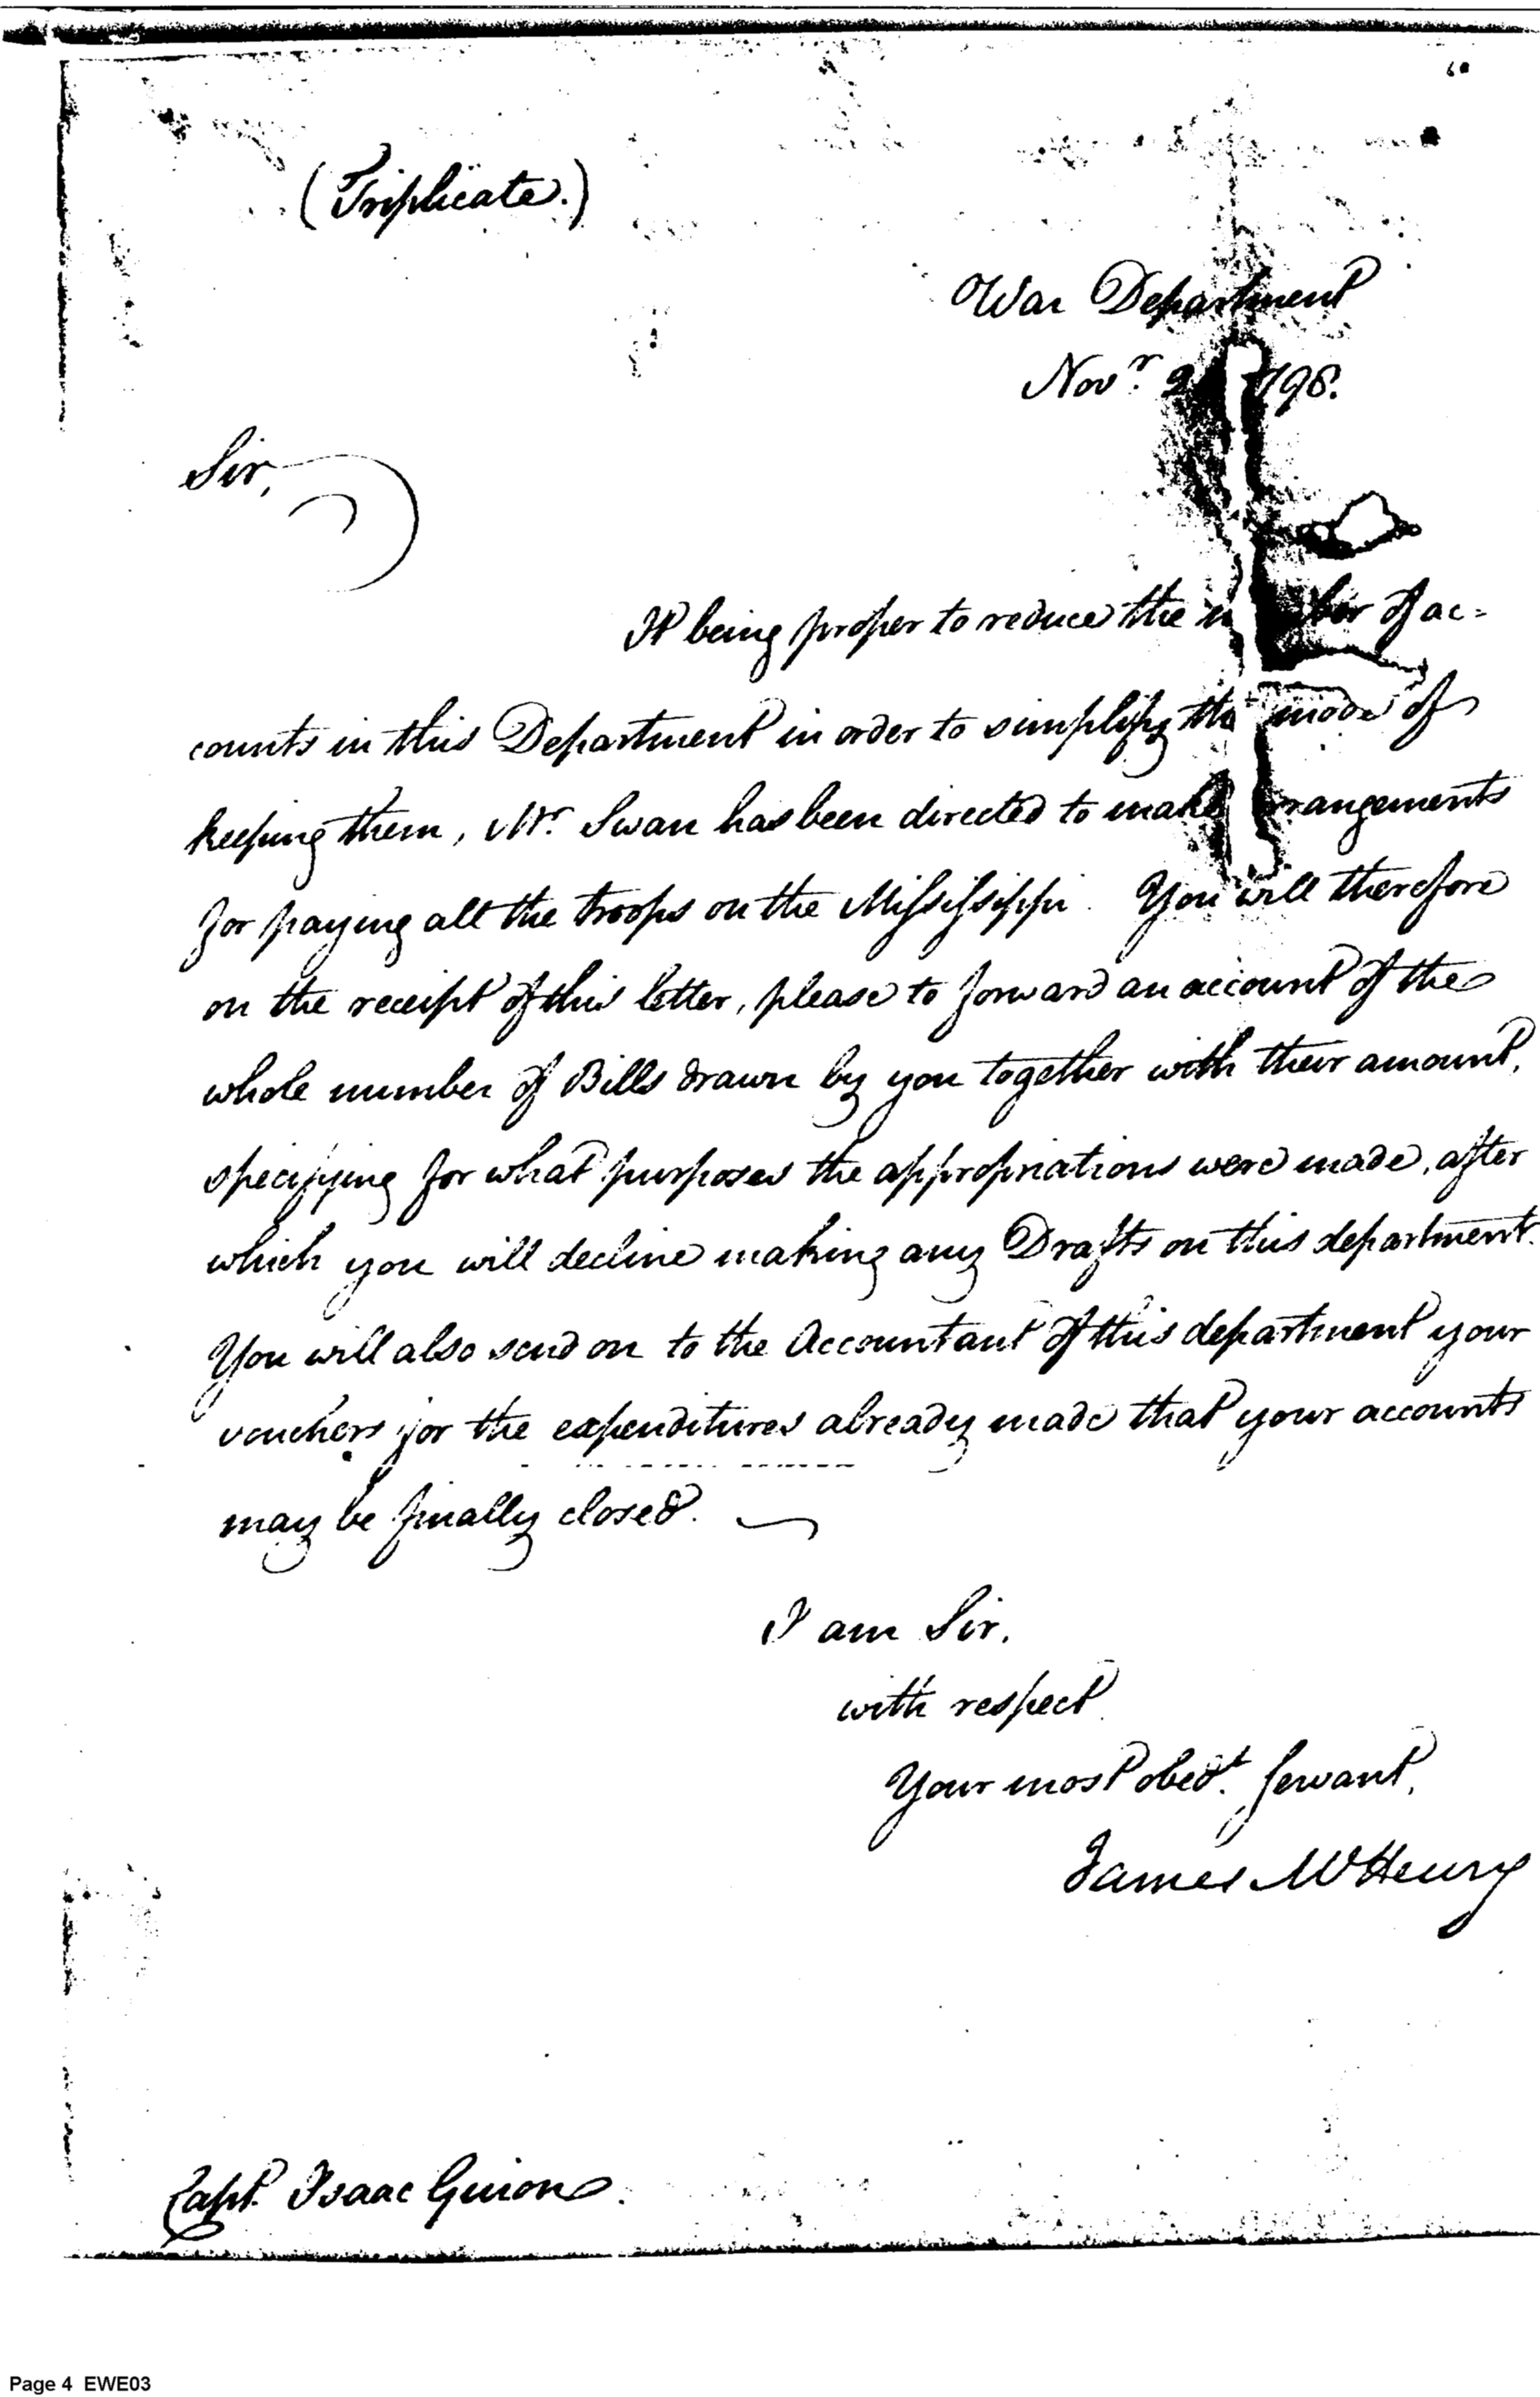 (Triplicate.)
War Department
Novr. 2 1798.
Sir,
It being proper to reduce the number of ac=
counts in this Department in order to simplify the mode of
keeping them, Mr. Swan has been directed to make arrangements
for paying all the troops on the Mississippi. You will therefore
on the receipt of this letter, please to forward an account of the
whole number of Bills drawn by you together with their amount,
specifying for what purposes the appropriations were made, after
which you will decline making any Drafts on this department.
You will also send on to the Accountant of this department your
vouchers for the expenditures already made that your accounts
may be finally closed.
I am Sir,
with respect
Your most obedt. servant,
James McHenry
Capt. Isaac Guion
Page 4 EWE03